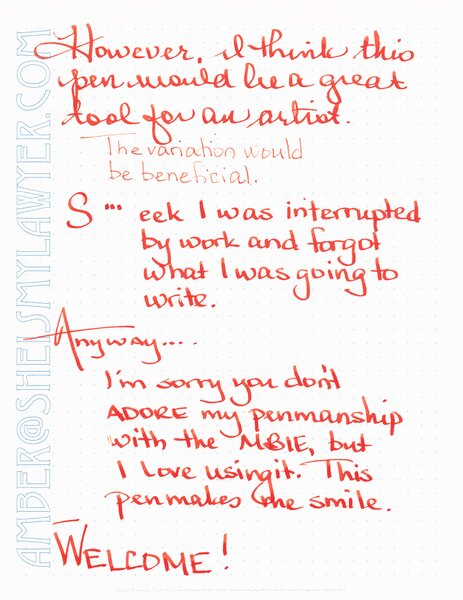 However, I think this
pen would be a great
tool for an artist.
The variation would
be beneficial.
S ... eek I was interrupted
by work and forgot
what I was going to
write.
Anyway....
I'm sorry you don't
ADORE my penmanship
with the MBIE, but
I love using it. This
pen makes me smile.
WELCOME!
AMBER@SHEISMYLAWYER.COM